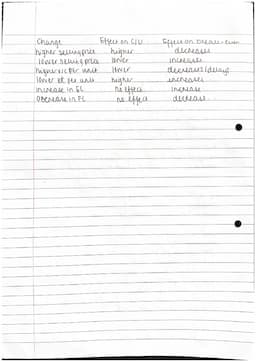 Change Effect on C/U Effect on break-even
higher selling price higher decreases
lower selling price lower increases
higher vc per unit lower decreases/delays
lower vc per unit higher increases
increase in FC no effect increase
Decrease in FC no effect decrease.